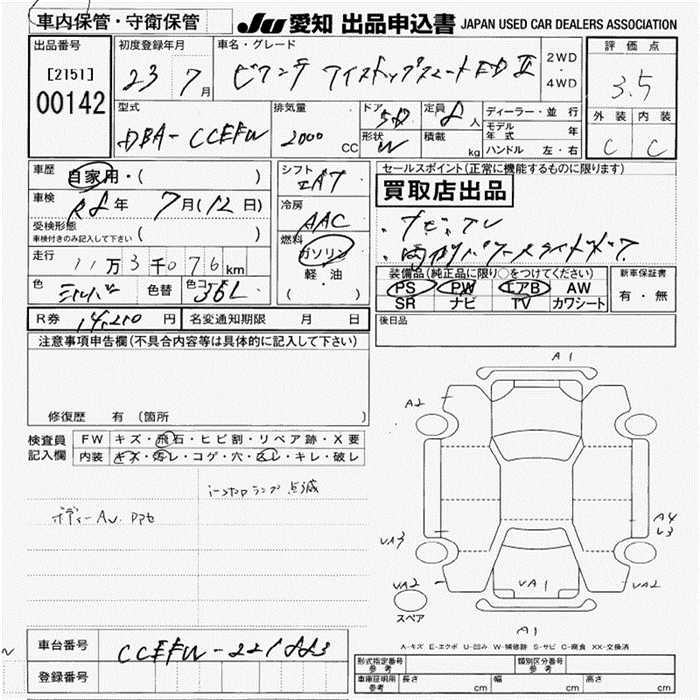 車内保管・守衛保管
JU 愛知 出品申込書 JAPAN USED CAR DEALERS ASSOCIATION
出品番号
[2151]
00142
初度登録年月
23 7月
車名・グレード
ビアンテ アイスト
2WD
4WD
評価点
3.5
型式
DBA-CCEFW
排気量
2000 CC
ドア
5D
形状
W
定員
8人
積載
kg
ディーラー・並行
モデル年式 年
ハンドル 左・右
外装 内装
C C
車歴 自家用・( )
車検 R8年 7月(12日)
受検形態
車検付きのみ記入して下さい ( )
走行 11万3千076km
色 シルバー 色替 色コード 36L
シフト
IAT
冷房
AAC
燃料
ガソリン
軽・油
( )
セールスポイント(正常に機能するものに限ります)
買取店出品
・ナビ、TV
・両側パワースライドドア
装備品(純正品に限り○をつけてください)
PS PW エアB AW
SR ナビ TV カワシート
新車保証書
有・無
R券 14,210円 名変通知期限 月 日
後日品
注意事項申告欄(不具合内容等は具体的に記入して下さい)
修復歴 有(箇所 )
検査員記入欄
FW キズ・飛石・ヒビ割・リペア跡・X要
内装 キズ・汚レ・コゲ・穴・スレ・キレ・破レ
ランプ点滅
ボディー
A1
A2
VA3
A4
L3
VA2
VA1
VA2
スペア
A1
A-キズ E-エクボ U-凹み W-補修跡 S-サビ C-腐食 XX-交換済
車台番号 CCEFW-221883
登録番号
形式指定番号 参考
類別区分番号 参考
車庫証明用 参考 長さ cm 幅 cm 高さ cm